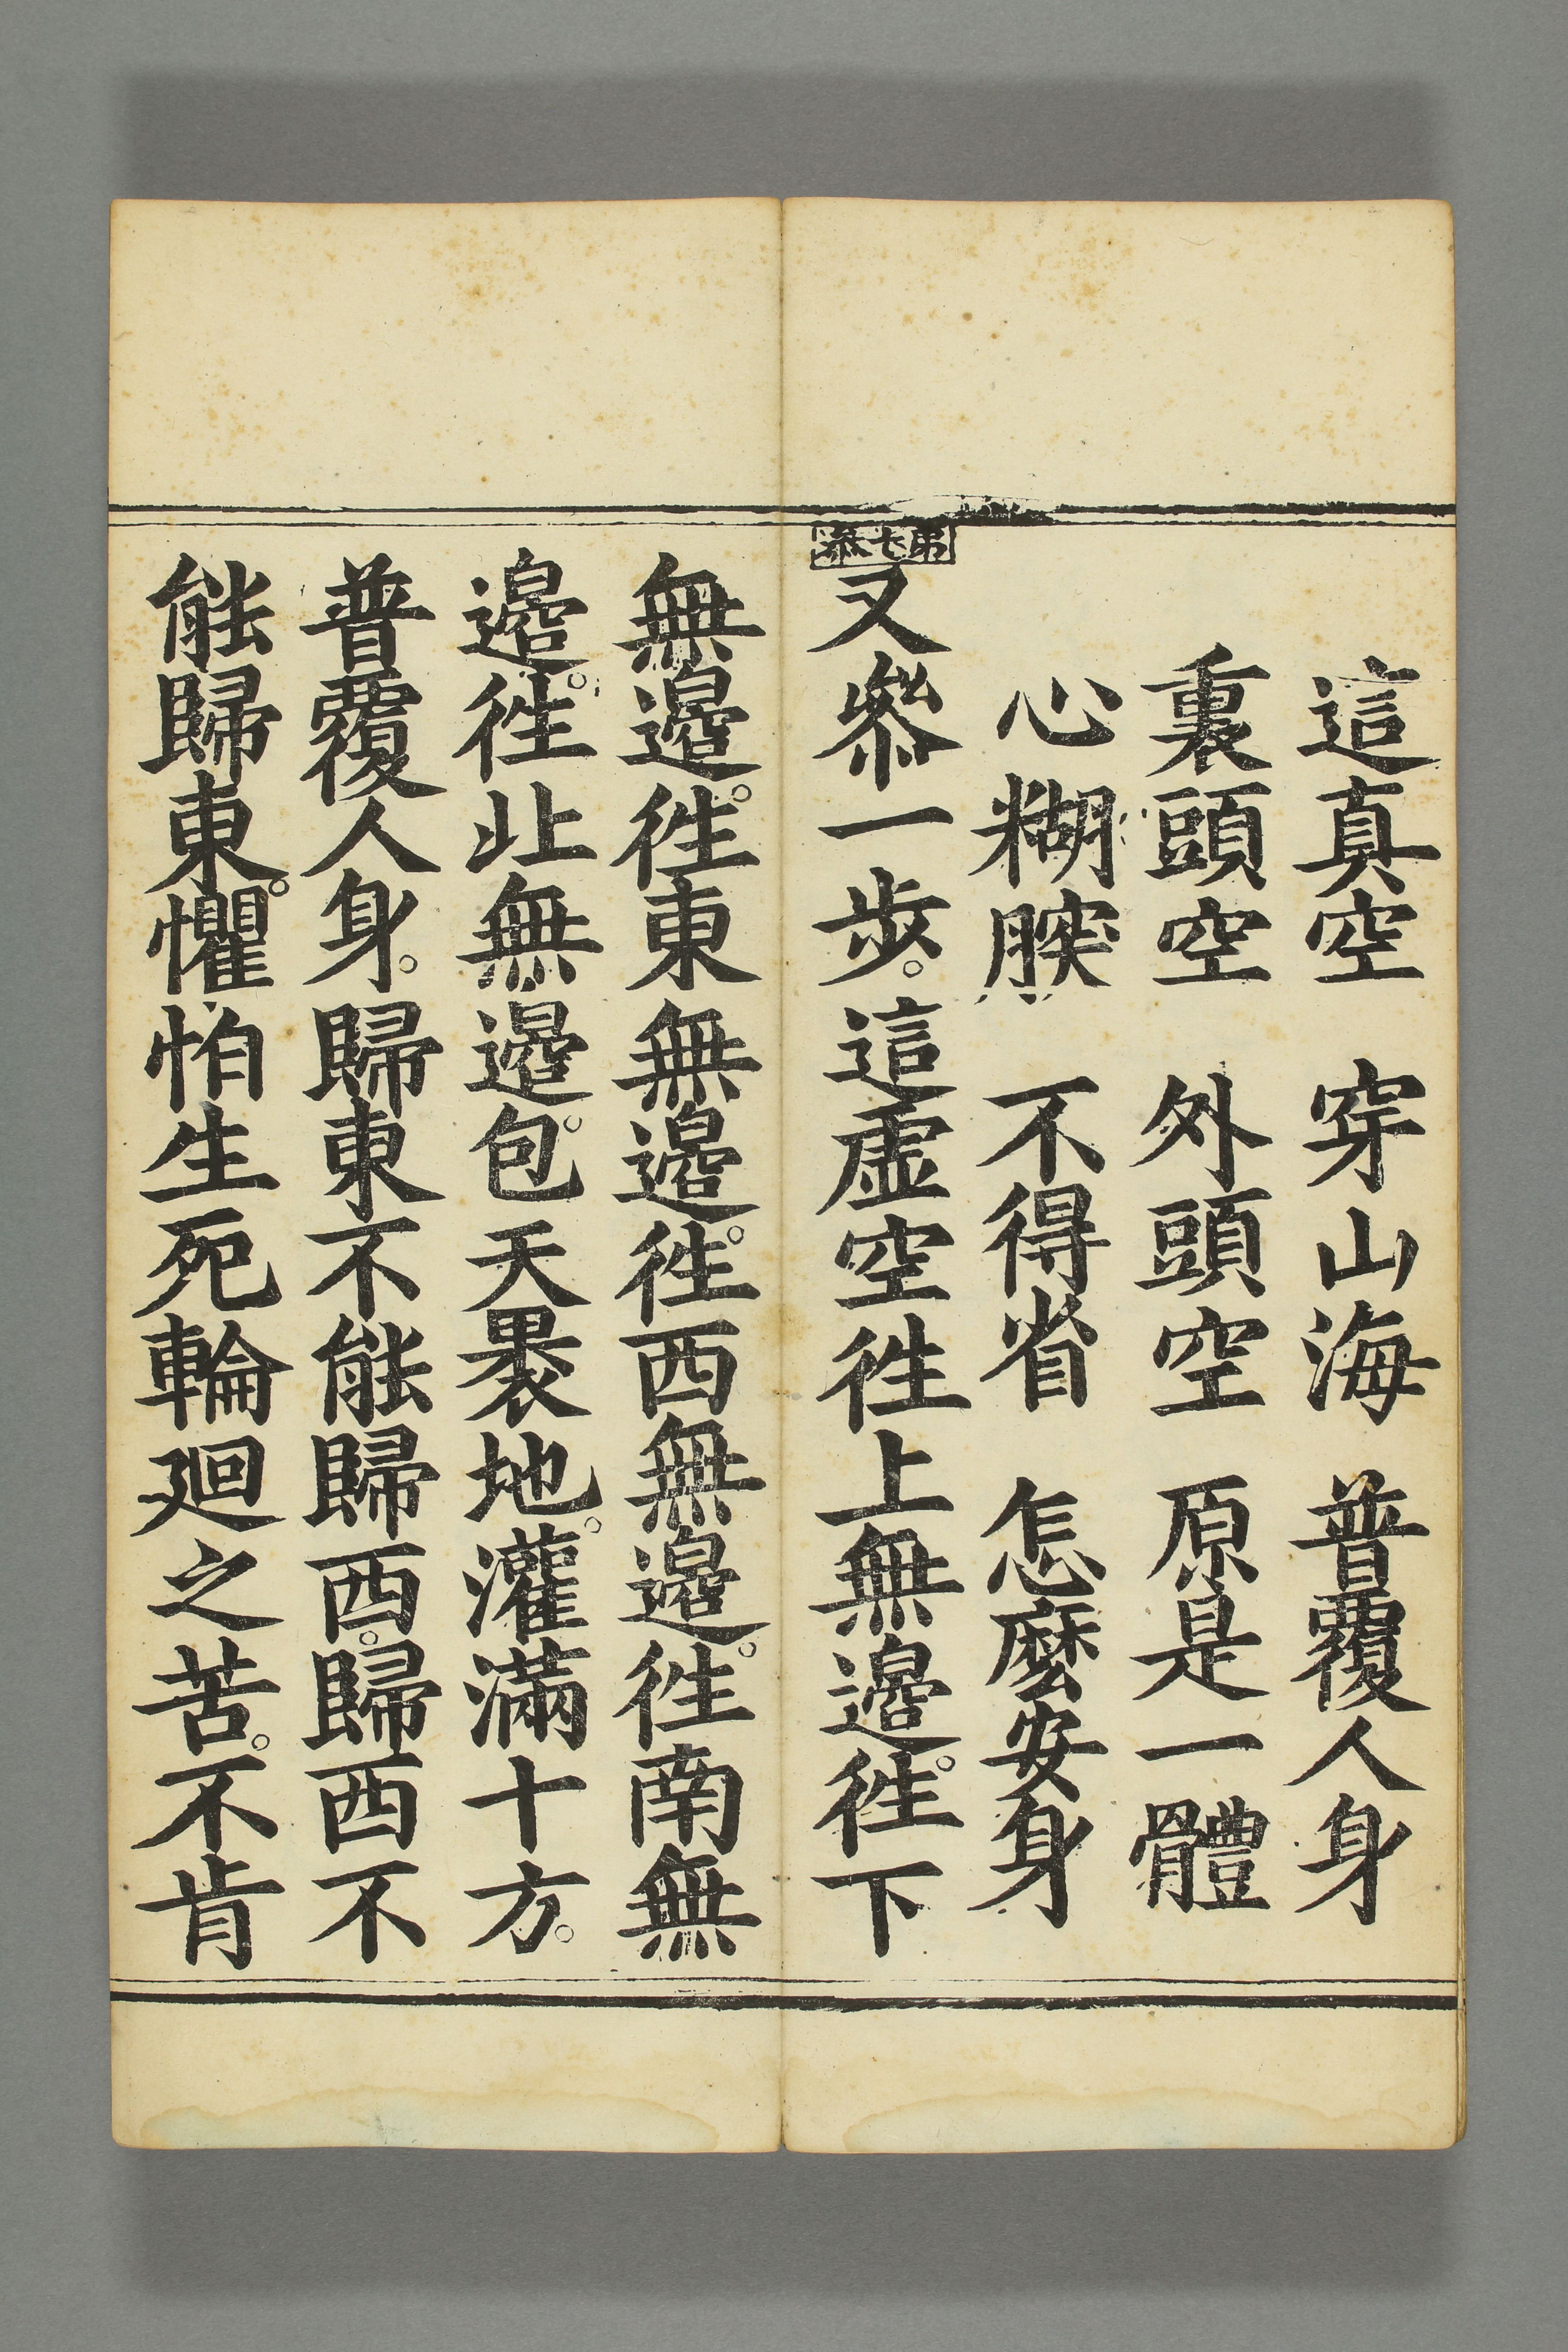 這真空　穿山海　普覆人身
裏頭空　外頭空　原是一體
心糊腴　不得省　怎麼安身
第七叅
又叅一步。這虛空徃上無邉。徃下
無邉。徃東無邉。徃西無邉。徃南無
邉。徃北無邉。包天裹地。灌滿十方。
普覆人身。歸東不能歸西。歸西不
能歸東。懼怕生死輪廻之苦。不肯